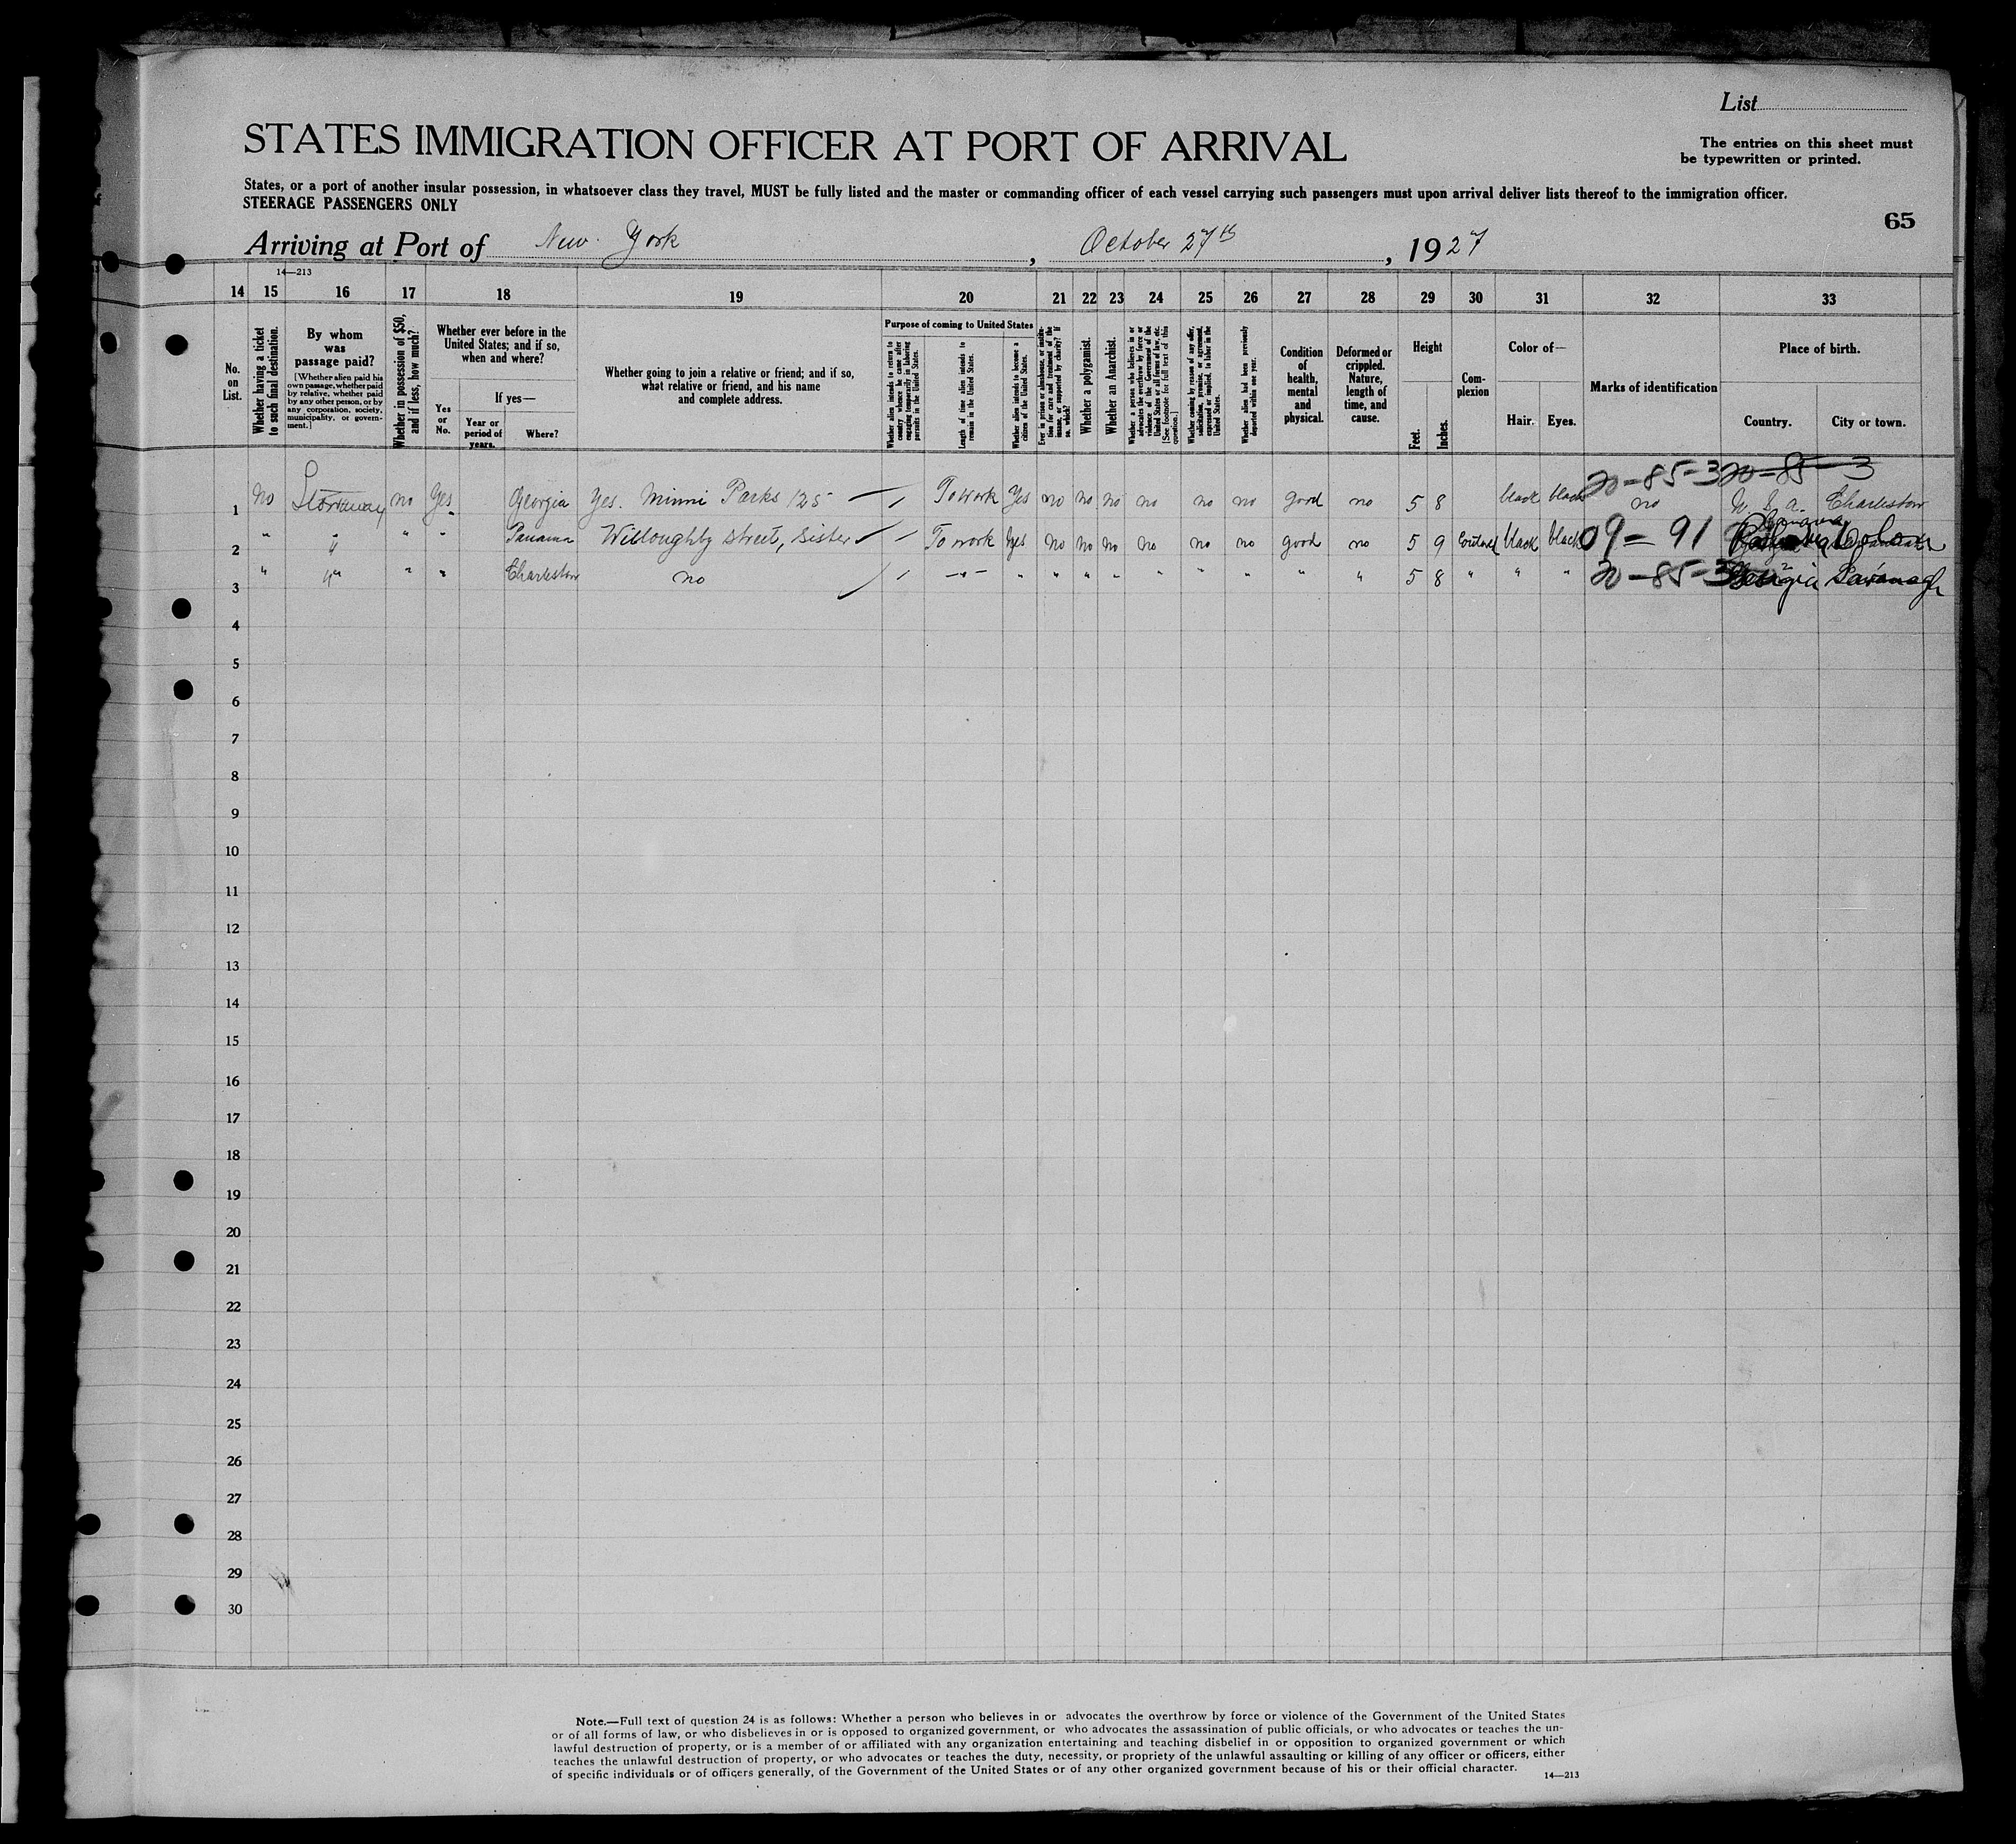 List
STATES IMMIGRATION OFFICER AT PORT OF ARRIVAL
The entries on this sheet must
be typewritten or printed.
States, or a port of another insular possession, in whatsoever class they travel, MUST be fully listed and the master or commanding officer of each vessel carrying such passengers must upon arrival deliver lists thereof to the immigration officer.
STEERAGE PASSENGERS ONLY
65
Arriving at Port of New York, October 27th, 1927
14—213
14 15 16 17 18 19 20 21 22 23 24 25 26 27 28 29 30 31 32 33
No. on List.
Whether having a ticket to such final destination.
By whom was passage paid?
[Whether alien paid his own passage, whether paid by relative, whether paid by any other person, or by any corporation, society, municipality, or government.]
Whether in possession of $50, and if less, how much?
Whether ever before in the United States; and if so, when and where?
Yes or No.
If yes—
Year or period of years.
Where?
Whether going to join a relative or friend; and if so, what relative or friend, and his name and complete address.
Purpose of coming to United States
Whether alien intends to return to country whence he came after engaging temporarily in laboring pursuits in the United States.
Length of time alien intends to remain in the United States.
Whether alien intends to become a citizen of the United States.
Ever in prison or almshouse, or institution for care and treatment of the insane, or supported by charity? If so, which?
Whether a polygamist.
Whether an Anarchist.
Whether a person who believes in or advocates the overthrow by force or violence of the Government of the United States or all forms of law, etc. [See footnote for full text of this question.]
Whether coming by reason of any offer, solicitation, promise, or agreement, expressed or implied, to labor in the United States.
Whether alien had been previously deported within one year.
Condition of health, mental and physical.
Deformed or crippled. Nature, length of time, and cause.
Height
Feet. Inches.
Complexion
Color of—
Hair. Eyes.
Marks of identification
Place of birth.
Country. City or town.
20-85-3 20-85-3
1 No no Yes Georgia Yes. Minni Parks 125 — / To work Yes no no no no no no good no 5 8 black black no Charleston
2 " " " " Panama Willoughby street, Sister / — To work Yes No No No No no no good no 5 9 black black 09-91 Colon
3 " " " " Charleston no / / — " — " " " " " " " " " 5 8 " " " 20-85-3 Georgia Savanagh
4
5
6
7
8
9
10
11
12
13
14
15
16
17
18
19
20
21
22
23
24
25
26
27
28
29
30
Note.—Full text of question 24 is as follows: Whether a person who believes in or advocates the overthrow by force or violence of the Government of the United States
or of all forms of law, or who disbelieves in or is opposed to organized government, or who advocates the assassination of public officials, or who advocates or teaches the un-
lawful destruction of property, or is a member of or affiliated with any organization entertaining and teaching disbelief in or opposition to organized government or which
teaches the unlawful destruction of property, or who advocates or teaches the duty, necessity, or propriety of the unlawful assaulting or killing of any officer or officers, either
of specific individuals or of officers generally, of the Government of the United States or of any other organized government because of his or their official character.
14—213